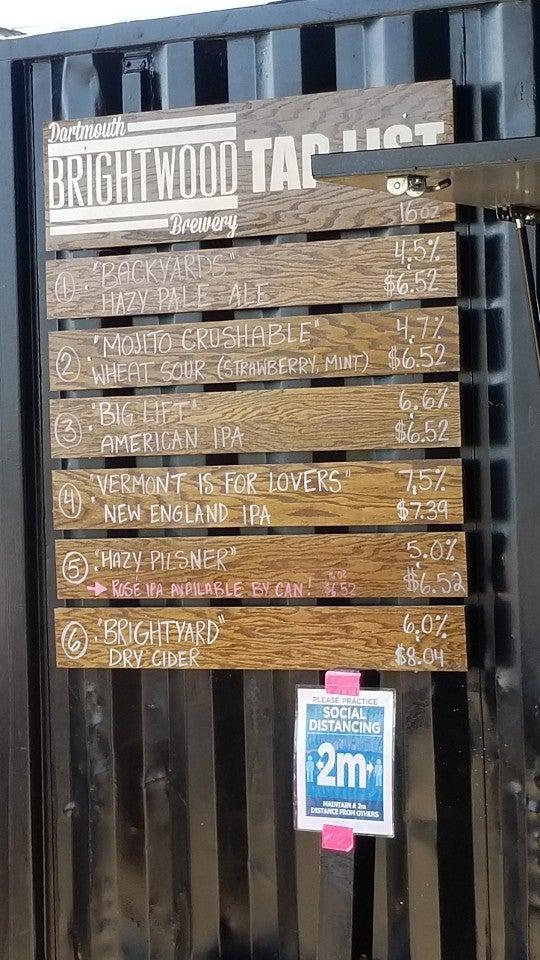 Dartmouth
BRIGHTWOOD
Brewery
TAP LIST
16oz
① "BACKYARDS" 4.5%
HAZY PALE ALE $6.52
② "MOJITO CRUSHABLE" 4.7%
WHEAT SOUR (STRAWBERRY, MINT) $6.52
③ "BIG LIFT" 6.6%
AMERICAN IPA $6.52
④ "VERMONT IS FOR LOVERS" 7.5%
NEW ENGLAND IPA $7.39
⑤ "HAZY PILSNER" 5.0%
→ ROSÉ IPA AVAILABLE BY CAN! $6.52 $6.52
⑥ "BRIGHTYARD" 6.0%
DRY CIDER $8.04
PLEASE PRACTICE
SOCIAL
DISTANCING
2m
MAINTAIN A 2m
DISTANCE FROM OTHERS